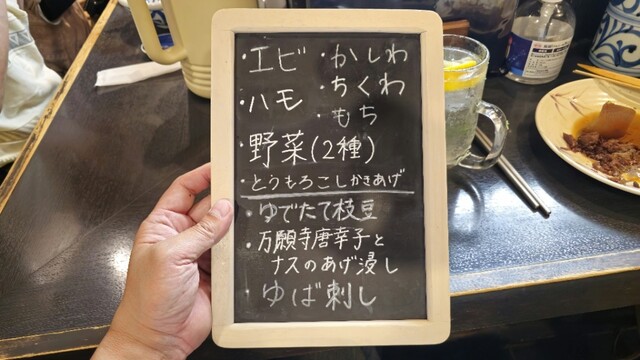 ・エビ ・かしわ
・ハモ ・ちくわ
・もち
・野菜(2種)
・とうもろこしかきあげ
・ゆでたて枝豆
・万願寺唐辛子と
ナスのあげ浸し
・ゆば刺し